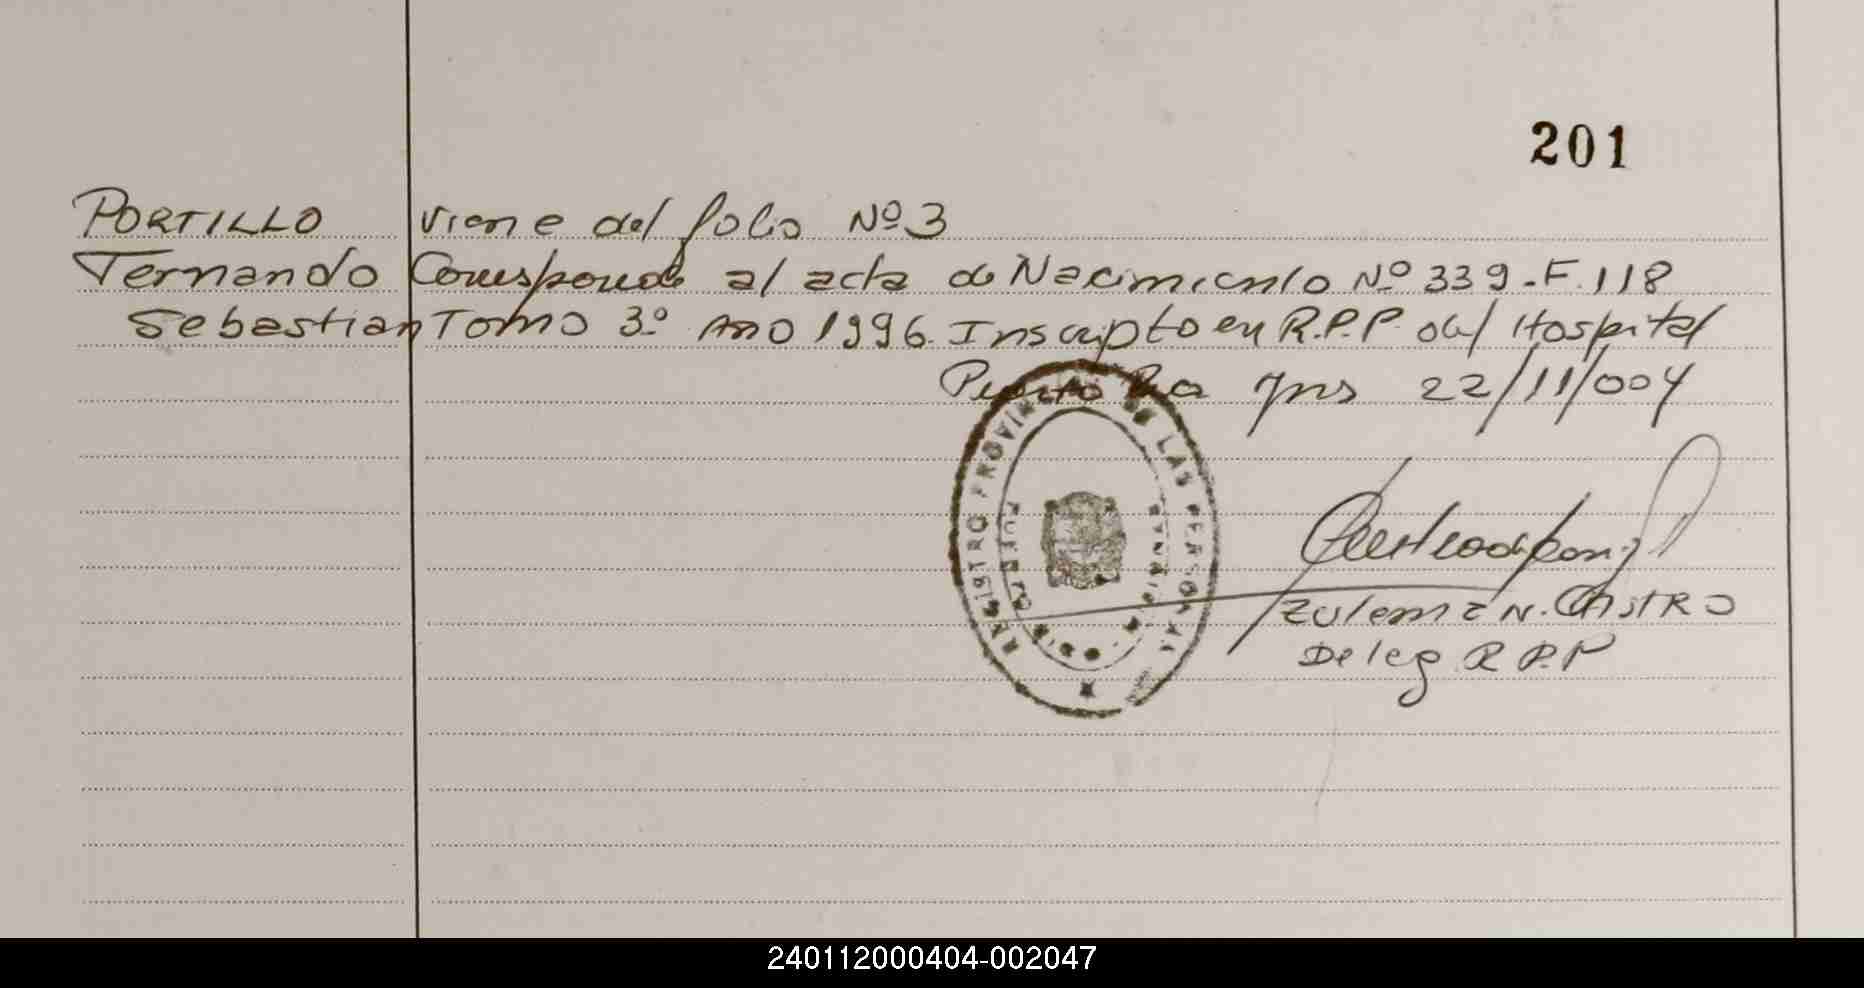 201
PORTILLO viene del folio Nº 3
Fernando Corresponde al acta de Nacimiento Nº 339-F.118
Sebastian Tomo 3º Año 1996. Inscripto en R.P.P. del Hospital
Puerto Rico Mns 22/11/004
REGISTRO PROVINCIAL DE LAS PERSONAS
Zulema N. Castro
Deleg R.P.P
240112000404-002047